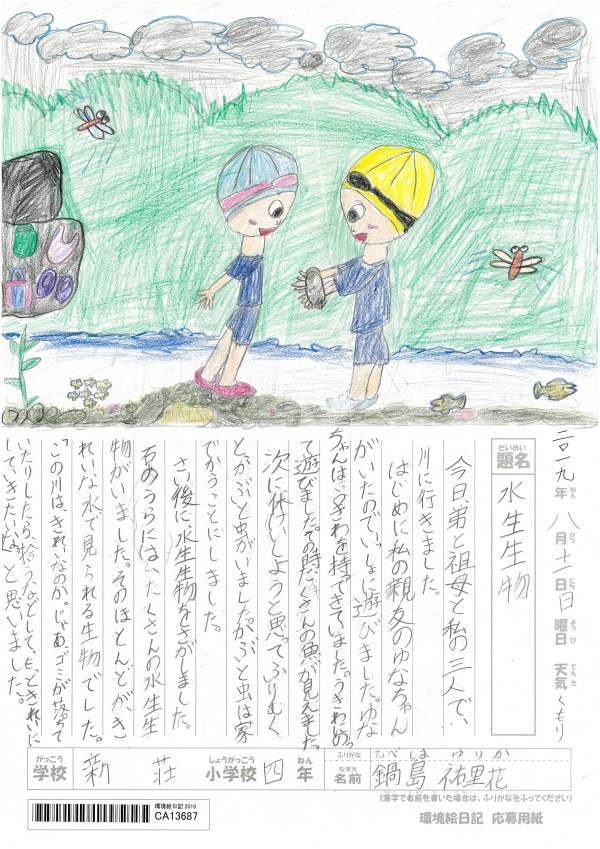 二〇一九年ねん 八月がつ 十一日にち 日曜日ようび 天気てんき くもり
題名だいめい 水生生物
今日、弟と祖母と私の三人で、
川に行きました。
はじめに私の親友のゆなちゃん
がいたのでいっしょに遊びました。ゆな
ちゃんは、うきわを持ってきていました。うきわにのっ
て遊びました。その時、たくさんの魚が見えました。
次に休けいしようと思ってふりむく
と、かぶと虫がいました。かぶと虫は家
でかうことにしました。
さい後に、水生生物をさがしました。
石のうらには、たくさんの水生生
物がいました。そのほとんどが、き
れいな水で見られる生物でした。
「この川は、きれいなのか。じゃあ、ゴミが落ちて
いたりしたら、拾うなどして、もっときれいに
していきたいな。」と思いました。
学校がっこう 新荘 小学校しょうがっこう 四年ねん
ふりがな なべしま ゆりか
名前なまえ 鍋島 祐里花
(漢字で名前を書いた場合は、ふりがなをふってください)
環境絵日記 2019
CA13687
環境絵日記 応募用紙